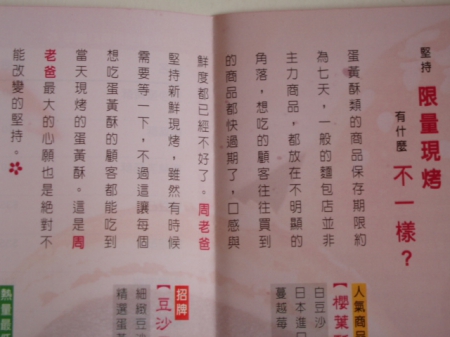 堅持
限量現烤
有什麼
不一樣？
蛋黃酥類的商品保存期限約
為七天，一般的麵包店並非
主力商品，都放在不明顯的
角落，想吃的顧客往往買到
的商品都快過期了，口感與
鮮度都已經不好了。周老爸
堅持新鮮現烤，雖然有時候
需要等一下，不過這讓每個
想吃蛋黃酥的顧客都能吃到
當天現烤的蛋黃酥。這是周
老爸最大的心願也是絕對不
能改變的堅持。
人氣商品
【櫻葉
白豆沙
日本進口
蔓越莓
招牌
【豆沙
細緻豆沙
精選蛋黃
熱量最低